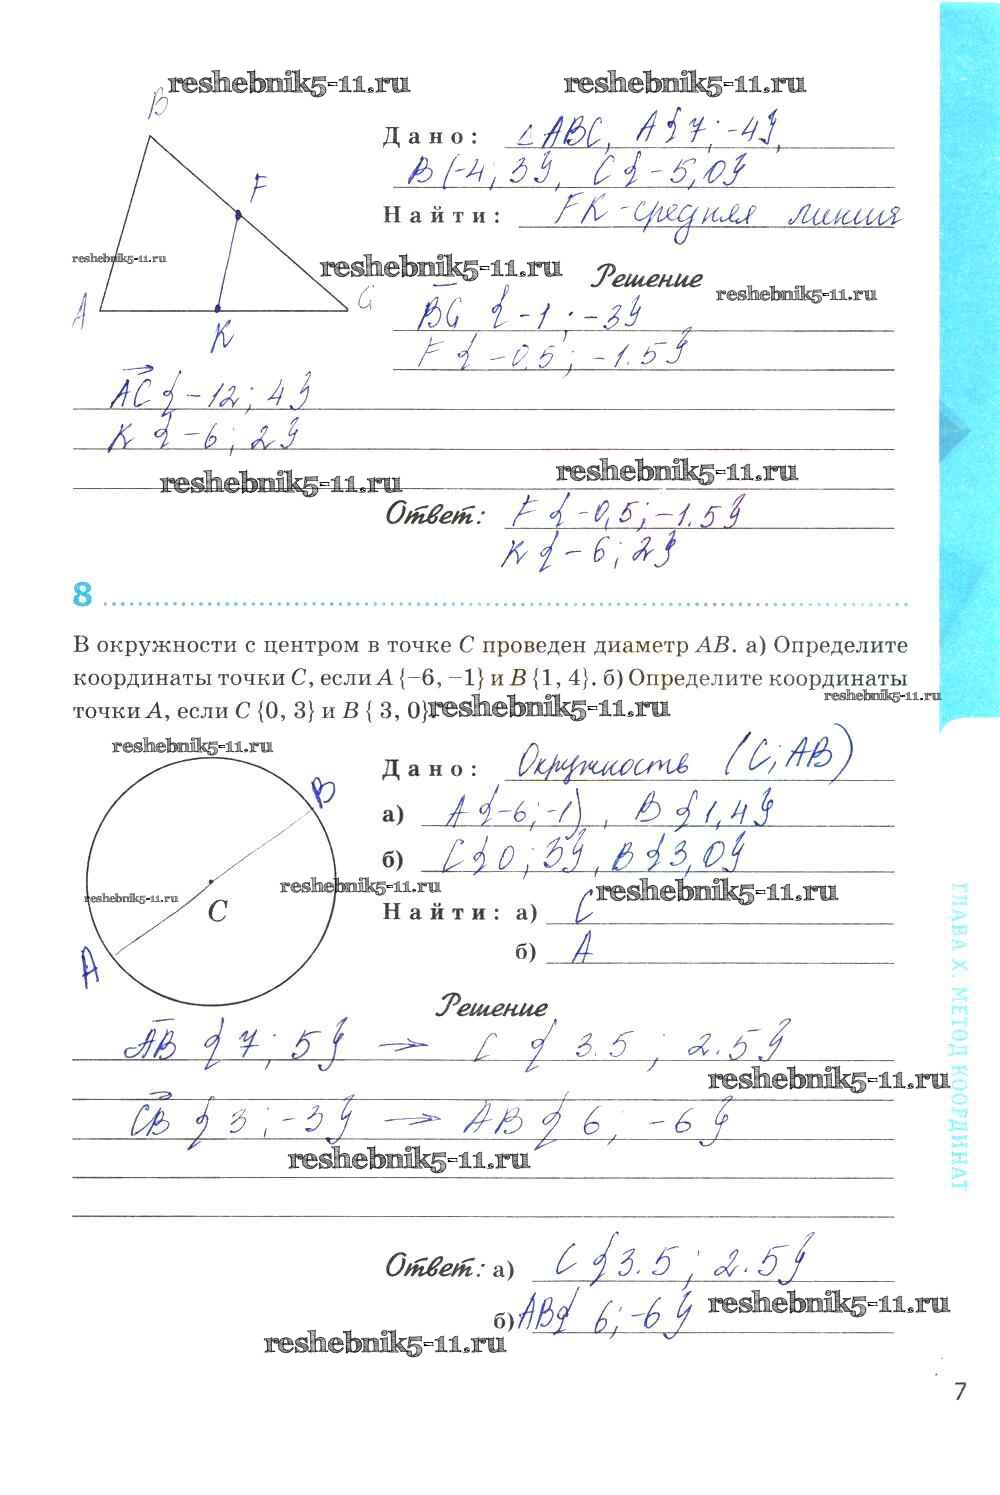 reshebnik5-11.ru reshebnik5-11.ru
B
Дано: △ABC, A{7; -4},
B{-4; 3}, C{-5, 0}
F
Найти: FK - средняя линия
reshebnik5-11.ru
reshebnik5-11.ru
Решение
reshebnik5-11.ru
A
K
C
BC {-1; -3}
F {-0,5; -1.5}
AC {-12; 4}
K {-6; 2}
reshebnik5-11.ru reshebnik5-11.ru
Ответ: F {-0,5; -1.5}
K {-6; 2}
8
В окружности с центром в точке C проведен диаметр AB. а) Определите
координаты точки C, если A {–6, –1} и B {1, 4}. б) Определите координаты
reshebnik5-11.ru
точки A, если C {0, 3} и B { 3, 0}.
reshebnik5-11.ru
reshebnik5-11.ru
Дано: Окружность (C; AB)
B
а) A{-6; -1}, B {1, 4}
б) C{0; 3}, B{3, 0}
reshebnik5-11.ru
reshebnik5-11.ru
reshebnik5-11.ru
C
Найти: а) C
б) A
A
Решение
AB {7; 5} → C {3.5; 2.5}
reshebnik5-11.ru
CB {3; -3} → AB {6; -6}
reshebnik5-11.ru
Ответ: а) C {3.5; 2.5}
б) AB{ 6; -6}
reshebnik5-11.ru
reshebnik5-11.ru
ГЛАВА X. МЕТОД КООРДИНАТ
7